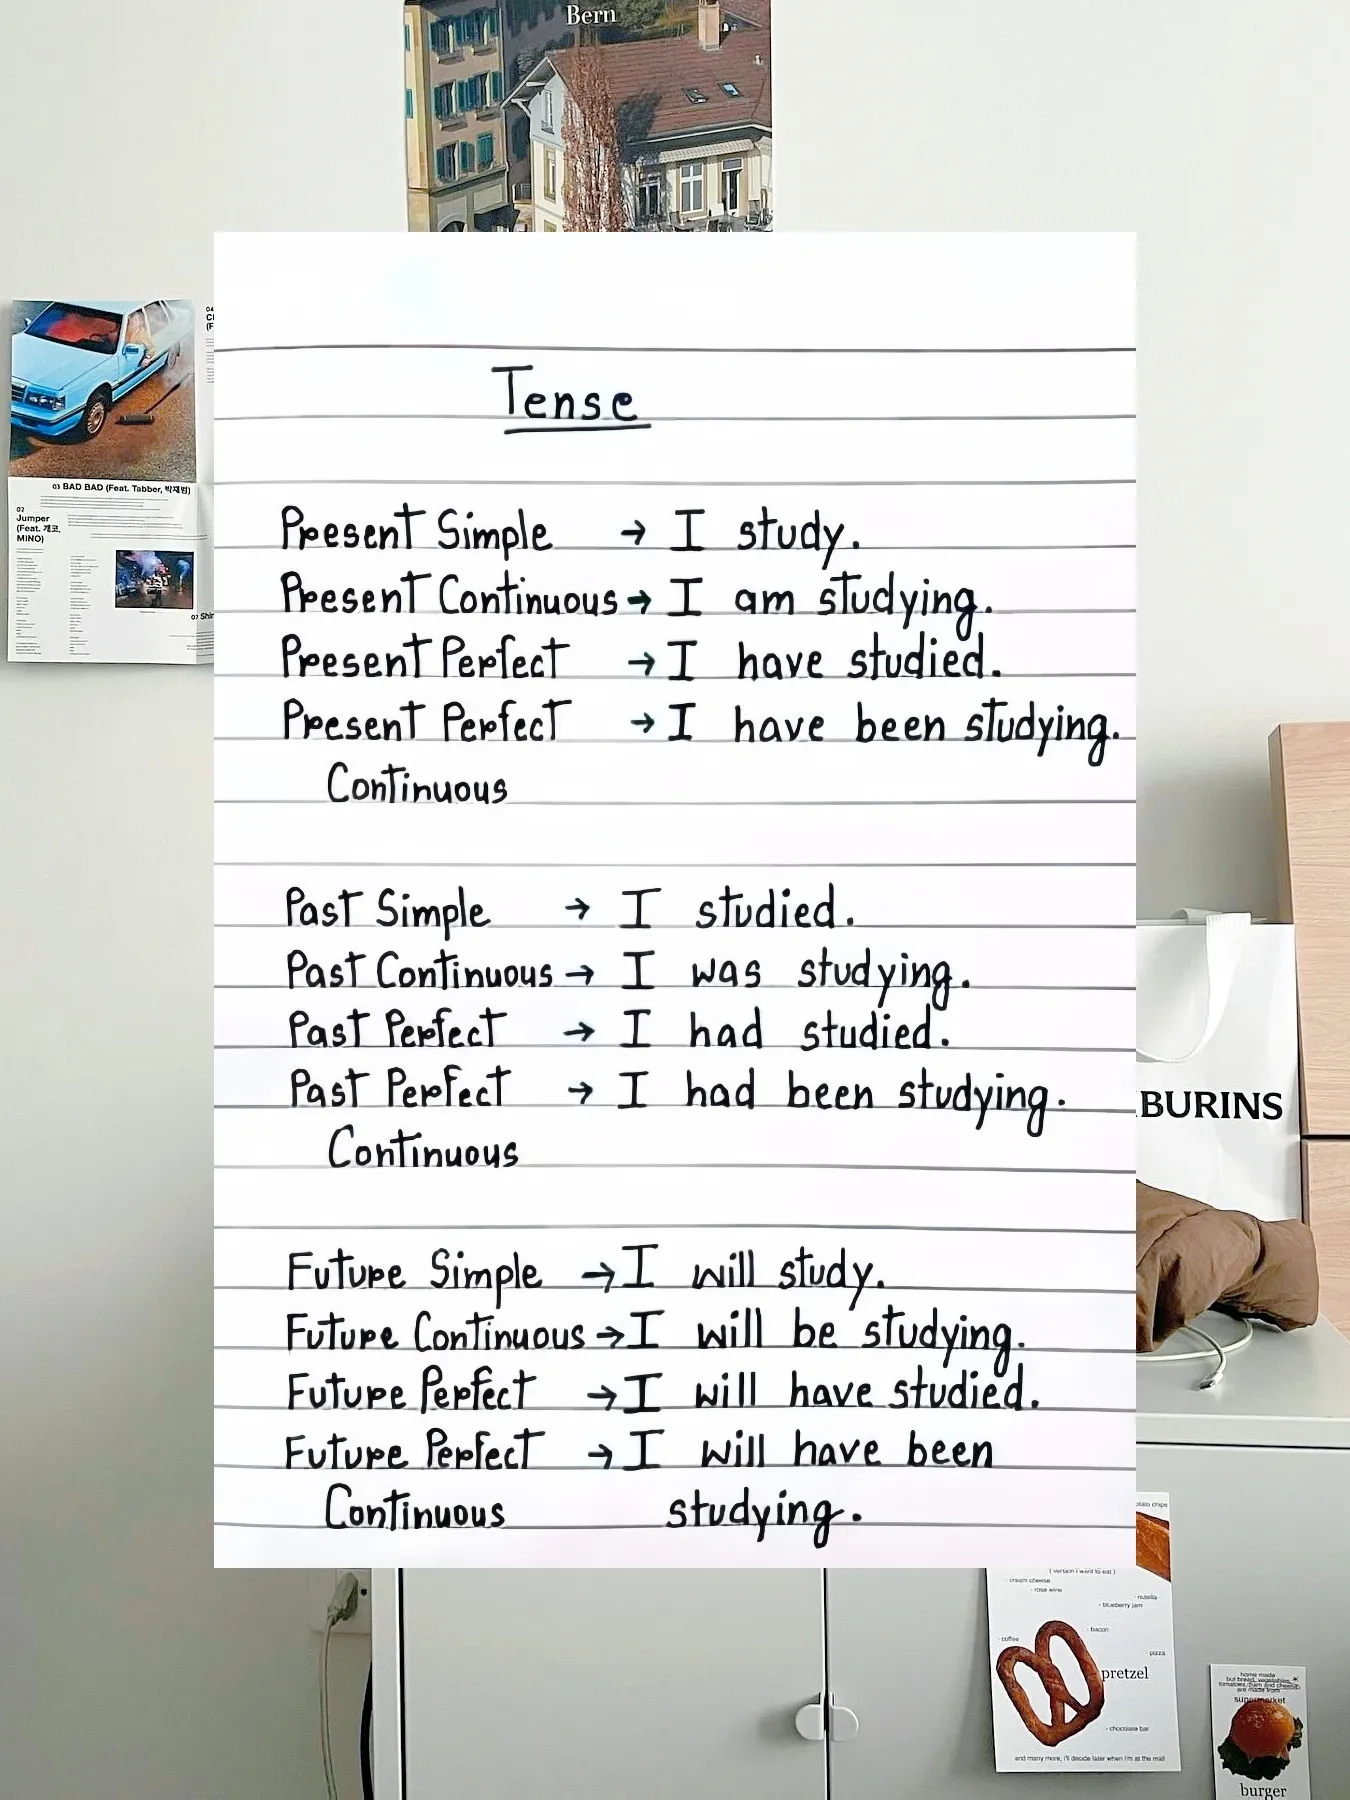 Bern
03 BAD BAD (Feat. Tabber, 박재범)
02
Jumper
(Feat. 개코,
MINO)
Tense
Present Simple → I study.
Present Continuous → I am studying.
Present Perfect → I have studied.
Present Perfect → I have been studying.
Continuous
Past Simple → I studied.
Past Continuous → I was studying.
Past Perfect → I had studied.
Past Perfect → I had been studying.
Continuous
Future Simple → I will study.
Future Continuous → I will be studying.
Future Perfect → I will have studied.
Future Perfect → I will have been
Continuous studying.
BURINS
( version i want to eat )
- cream cheese
- rose wine
- nutella
- blueberry jam
- bacon
- coffee
pizza
pretzel
- chocolate bar
and many more, i'll decide later when i'm at the mall
home made
but bread, vegetables,
tomatoes, ham and cheese
are made from
supermarket
burger